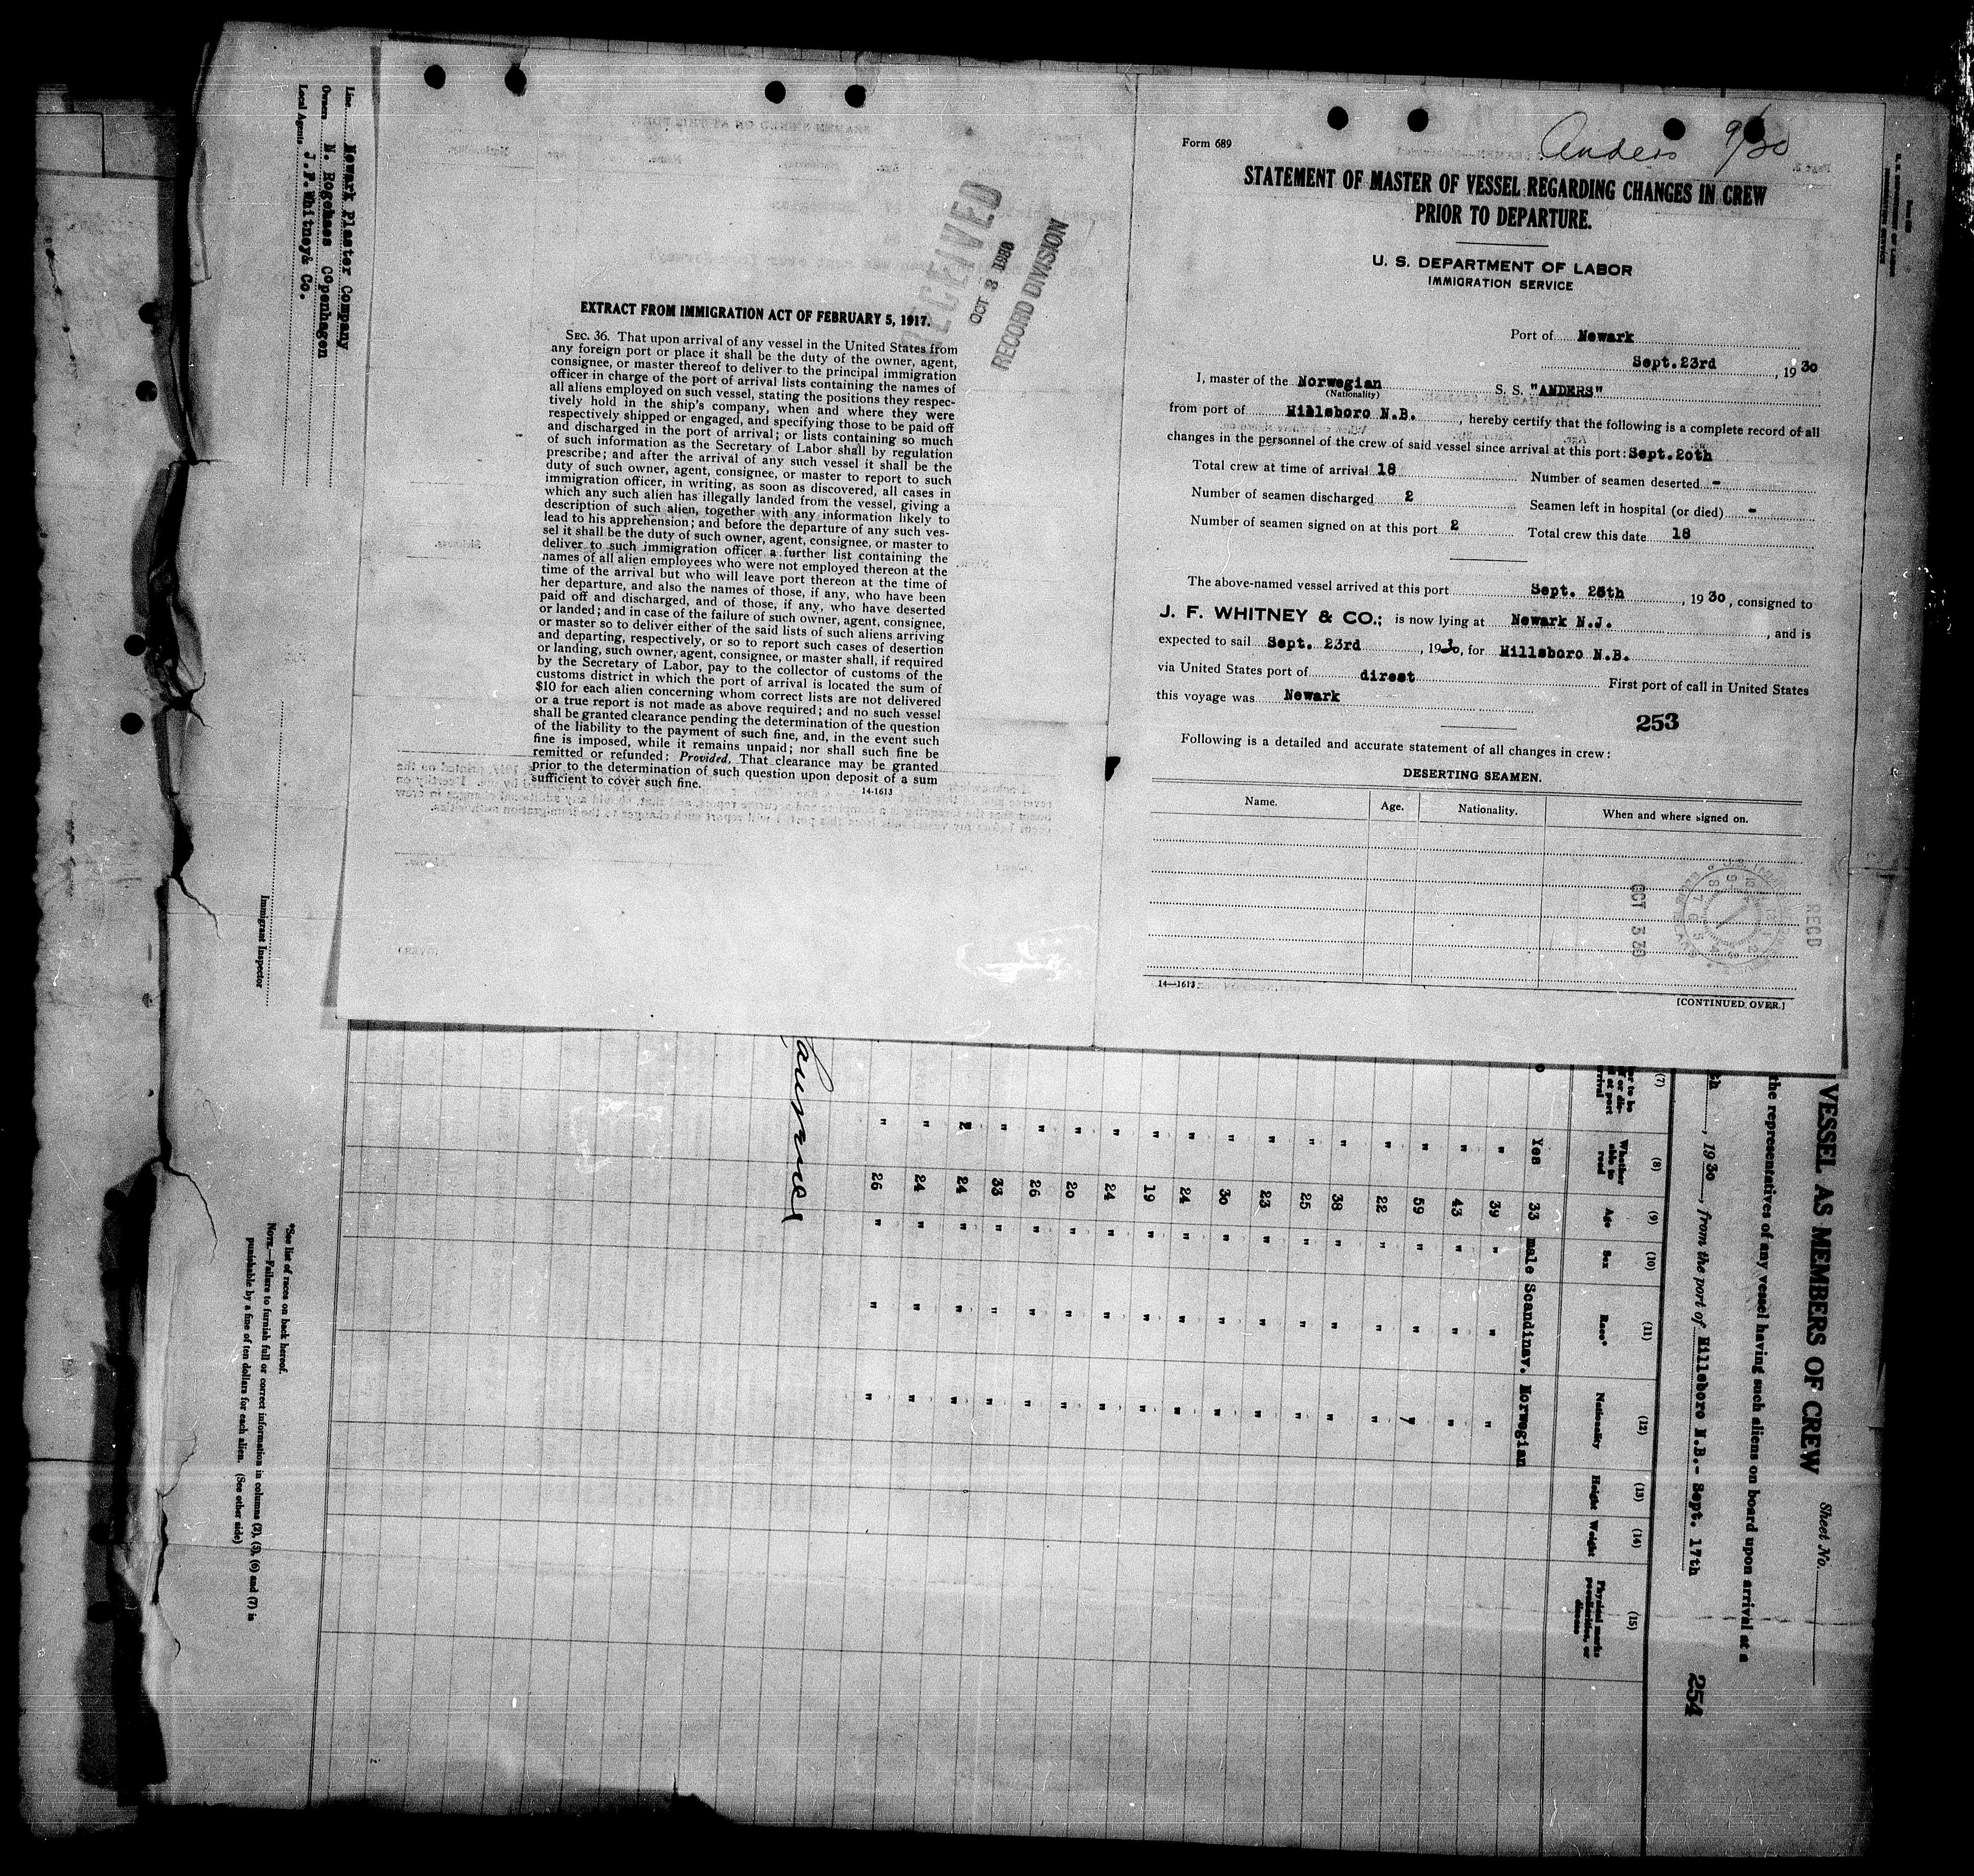 Form 689
Anders 9/20
STATEMENT OF MASTER OF VESSEL REGARDING CHANGES IN CREW
PRIOR TO DEPARTURE.
U. S. DEPARTMENT OF LABOR
IMMIGRATION SERVICE
Port of Newark
Sept.23rd, 1930
I, master of the Norwegian S. S. "ANDERS"
(Nationality)
from port of Hillsboro N.B., hereby certify that the following is a complete record of all
changes in the personnel of the crew of said vessel since arrival at this port: Sept.20th
Total crew at time of arrival 18 Number of seamen deserted -
Number of seamen discharged 2 Seamen left in hospital (or died) -
Number of seamen signed on at this port 2 Total crew this date 18
The above-named vessel arrived at this port Sept. 20th, 1930, consigned to
J. F. WHITNEY & CO.; is now lying at Newark N.J., and is
expected to sail Sept. 23rd, 1930, for Hillsboro N.B.
via United States port of direct First port of call in United States
this voyage was Newark
253
Following is a detailed and accurate statement of all changes in crew:
DESERTING SEAMEN.
Name. Age. Nationality. When and where signed on.
RECD
OCT 3 30
14—1613
[CONTINUED OVER.]
RECEIVED
OCT 3 1930
RECORD DIVISION
EXTRACT FROM IMMIGRATION ACT OF FEBRUARY 5, 1917.
SEC. 36. That upon arrival of any vessel in the United States from
any foreign port or place it shall be the duty of the owner, agent,
consignee, or master thereof to deliver to the principal immigration
officer in charge of the port of arrival lists containing the names of
all aliens employed on such vessel, stating the positions they respec-
tively hold in the ship's company, when and where they were
respectively shipped or engaged, and specifying those to be paid off
and discharged in the port of arrival; or lists containing so much
of such information as the Secretary of Labor shall by regulation
prescribe; and after the arrival of any such vessel it shall be the
duty of such owner, agent, consignee, or master to report to such
immigration officer, in writing, as soon as discovered, all cases in
which any such alien has illegally landed from the vessel, giving a
description of such alien, together with any information likely to
lead to his apprehension; and before the departure of any such ves-
sel it shall be the duty of such owner, agent, consignee, or master to
deliver to such immigration officer a further list containing the
names of all alien employees who were not employed thereon at the
time of the arrival but who will leave port thereon at the time of
her departure, and also the names of those, if any, who have been
paid off and discharged, and of those, if any, who have deserted
or landed; and in case of the failure of such owner, agent, consignee,
or master so to deliver either of the said lists of such aliens arriving
and departing, respectively, or so to report such cases of desertion
or landing, such owner, agent, consignee, or master shall, if required
by the Secretary of Labor, pay to the collector of customs of the
customs district in which the port of arrival is located the sum of
$10 for each alien concerning whom correct lists are not delivered
or a true report is not made as above required; and no such vessel
shall be granted clearance pending the determination of the question
of the liability to the payment of such fine, and, in the event such
fine is imposed, while it remains unpaid; nor shall such fine be
remitted or refunded: Provided, That clearance may be granted
prior to the determination of such question upon deposit of a sum
sufficient to cover such fine.
14-1613
VESSEL AS MEMBERS OF CREW
Sheet No.
the representatives of any vessel having such aliens on board upon arrival at a
, 1930, from the port of Hillsboro N.B.- Sept. 17th
254
(7) (8) (9) (10) (11) (12) (13) (14) (15)
Whether able to read Age Sex Race* Nationality Height Weight Physical marks, peculiarities, or disease
Yes 33 male Scandinav. Norwegian
" 39 " " "
" 43 " " "
" 59 " " "
" 22 " " "
" 38 " " "
" 25 " " "
" 23 " " "
" 30 " " "
" 24 " " "
" 19 " " "
" 24 " " "
" 20 " " "
" 26 " " "
" 33 " " "
" 24 " " "
" 24 " " "
" 26 " " "
Line Newark Plaster Company
Owners N. Rogenæs Copenhagen
Local Agents J.F.Whitney& Co.
Immigrant Inspector
*See list of races on back hereof.
NOTE.—Failure to furnish full or correct information in columns (2), (5), (6) and (7) is
punishable by a fine of ten dollars for each alien. (See other side)